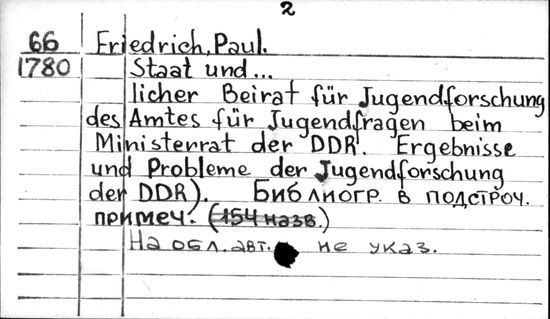 2
66 Friedrich, Paul.
1780 Staat und...
licher Beirat für Jugendforschung
des Amtes für Jugendfragen beim
Ministerrat der DDR. Ergebnisse
und Probleme der Jugendforschung
der DDR). Библиогр. в подстроч.
примеч. (154 назв.)
На обл. авт. не указ.